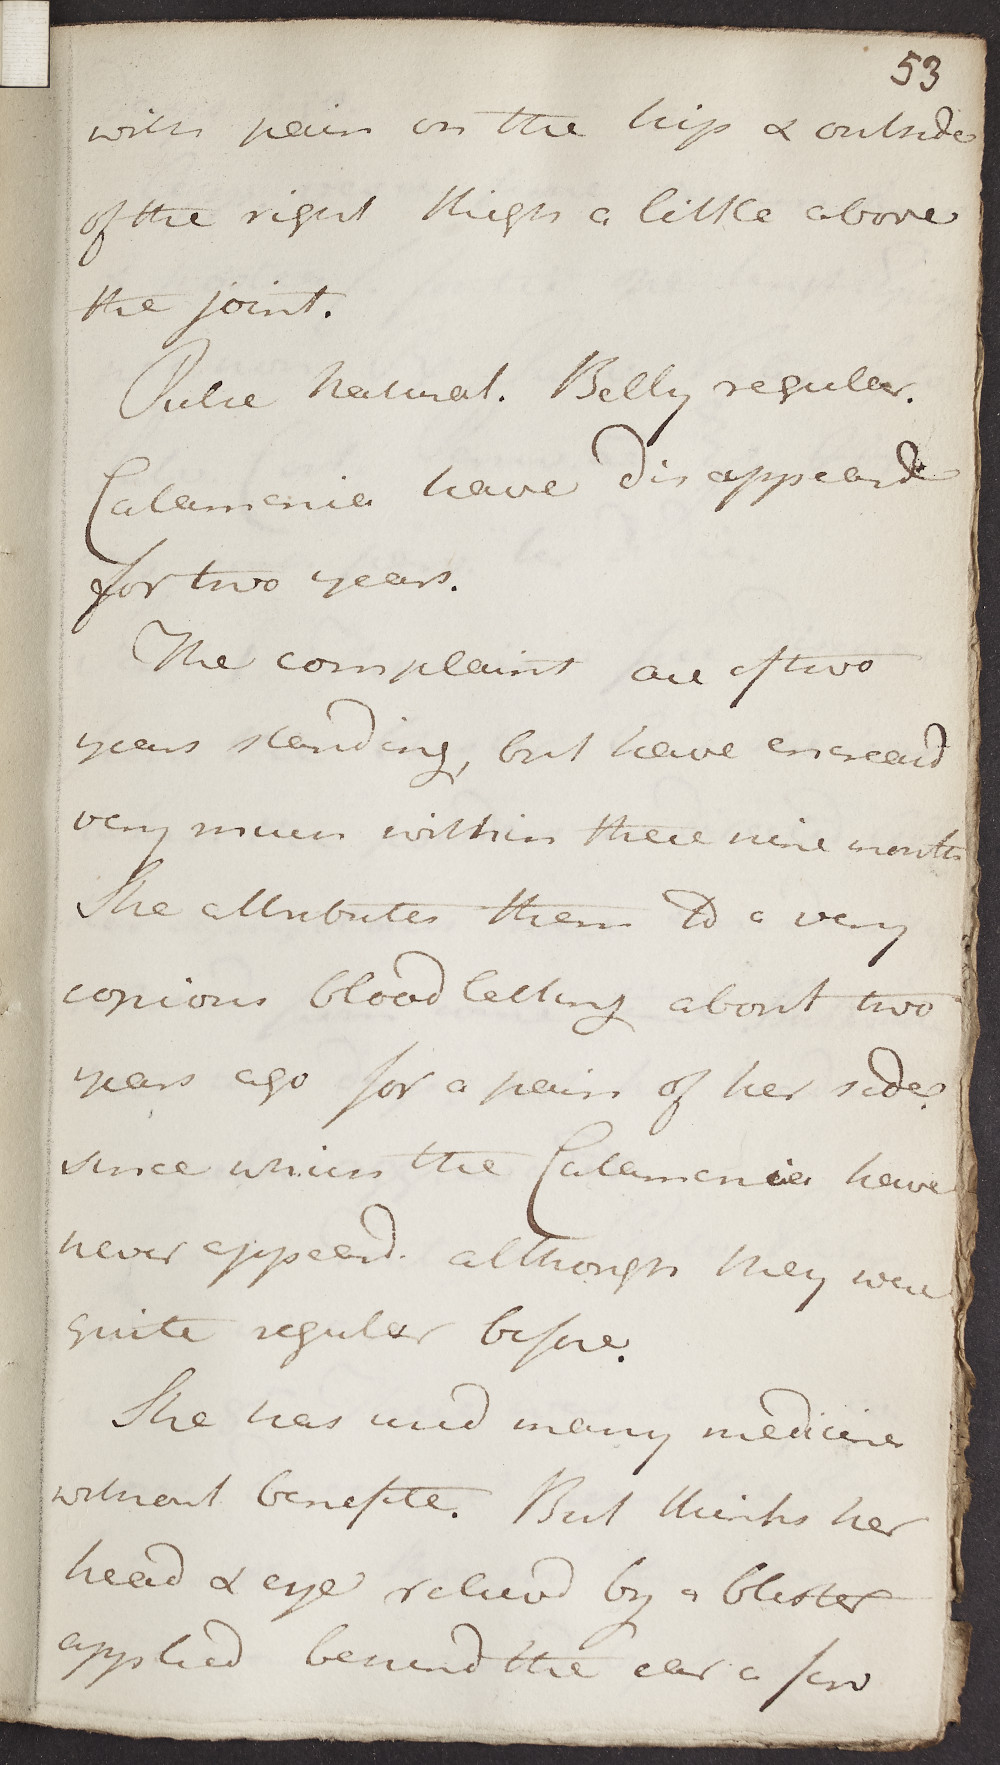 53
with pain on the hip & outside
of the right thigh a little above
the joint.
Pulse natural. Belly regular.
Catamenia have disappeard
for two years.
The complaint are of two
years standing, but have encreasd
very much within these nine months
She attributes them to a very
copious bloodletting about two
years ago for a pain of her side.
since which the Catamenia have
never appeard. although they were
quite regular before.
She has used many medicines
without benefite. But thinks her
head & eye relievd by a blister
applied behind the ear a few